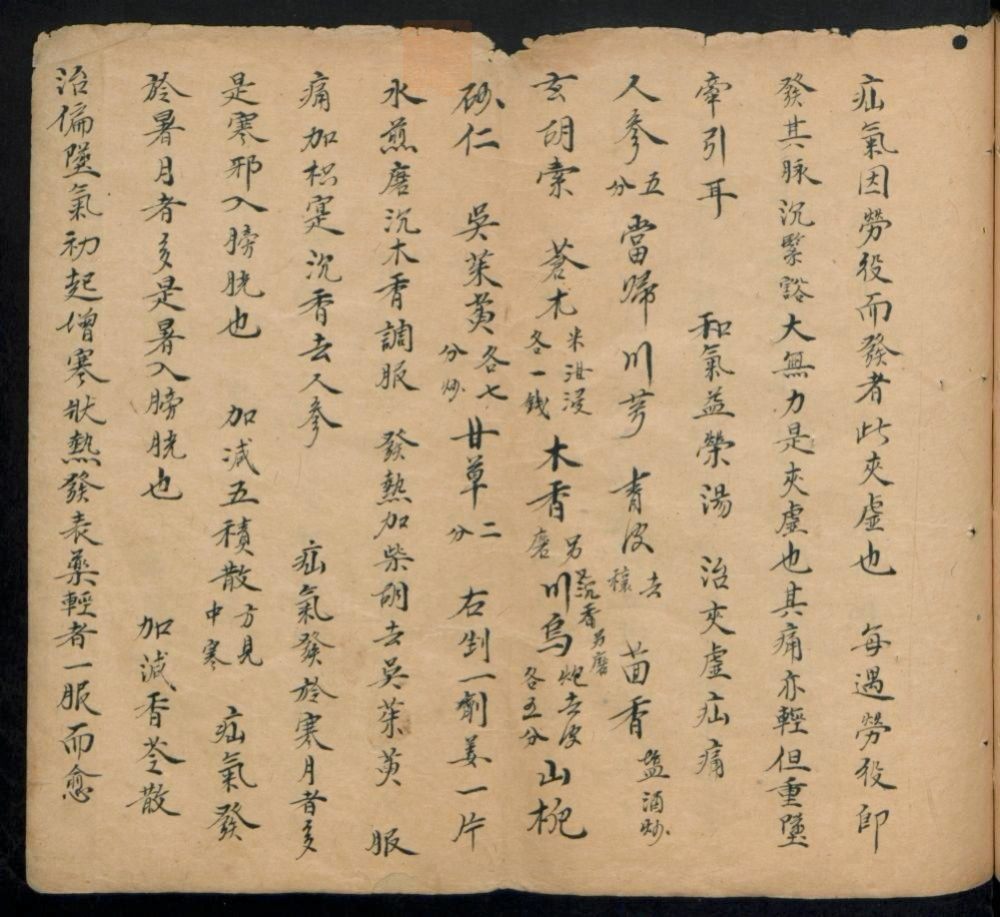 疝氣因勞役而發者此夾虛也　每遇勞役即
發其脉沉緊豁大無力是夾虛也其痛亦輕但重墜
牽引耳　和氣益榮湯　治夾虛疝痛
人參五分當歸川芎青皮去穰茴香塩酒炒
玄胡索　蒼朮米泔浸各一錢木香另磨沉香另磨川烏炮去皮各五分山梔
砂仁　吳茱萸各七分炒甘草二分　右剉一劑姜一片
水煎磨沉木香調服　發熱加柴胡去吳茱萸　服
痛加枳寔沉香去人參　疝氣發於寒月者多
是寒邪入膀胱也　加減五積散方見中寒　疝氣發
於暑月者多是暑入膀胱也　加減香苓散
治偏墜氣初起增寒狀熱發表藥輕者一服而愈